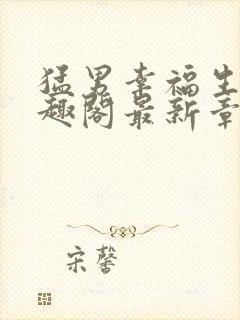 猛男幸福生
趣阁最新章
宋馨